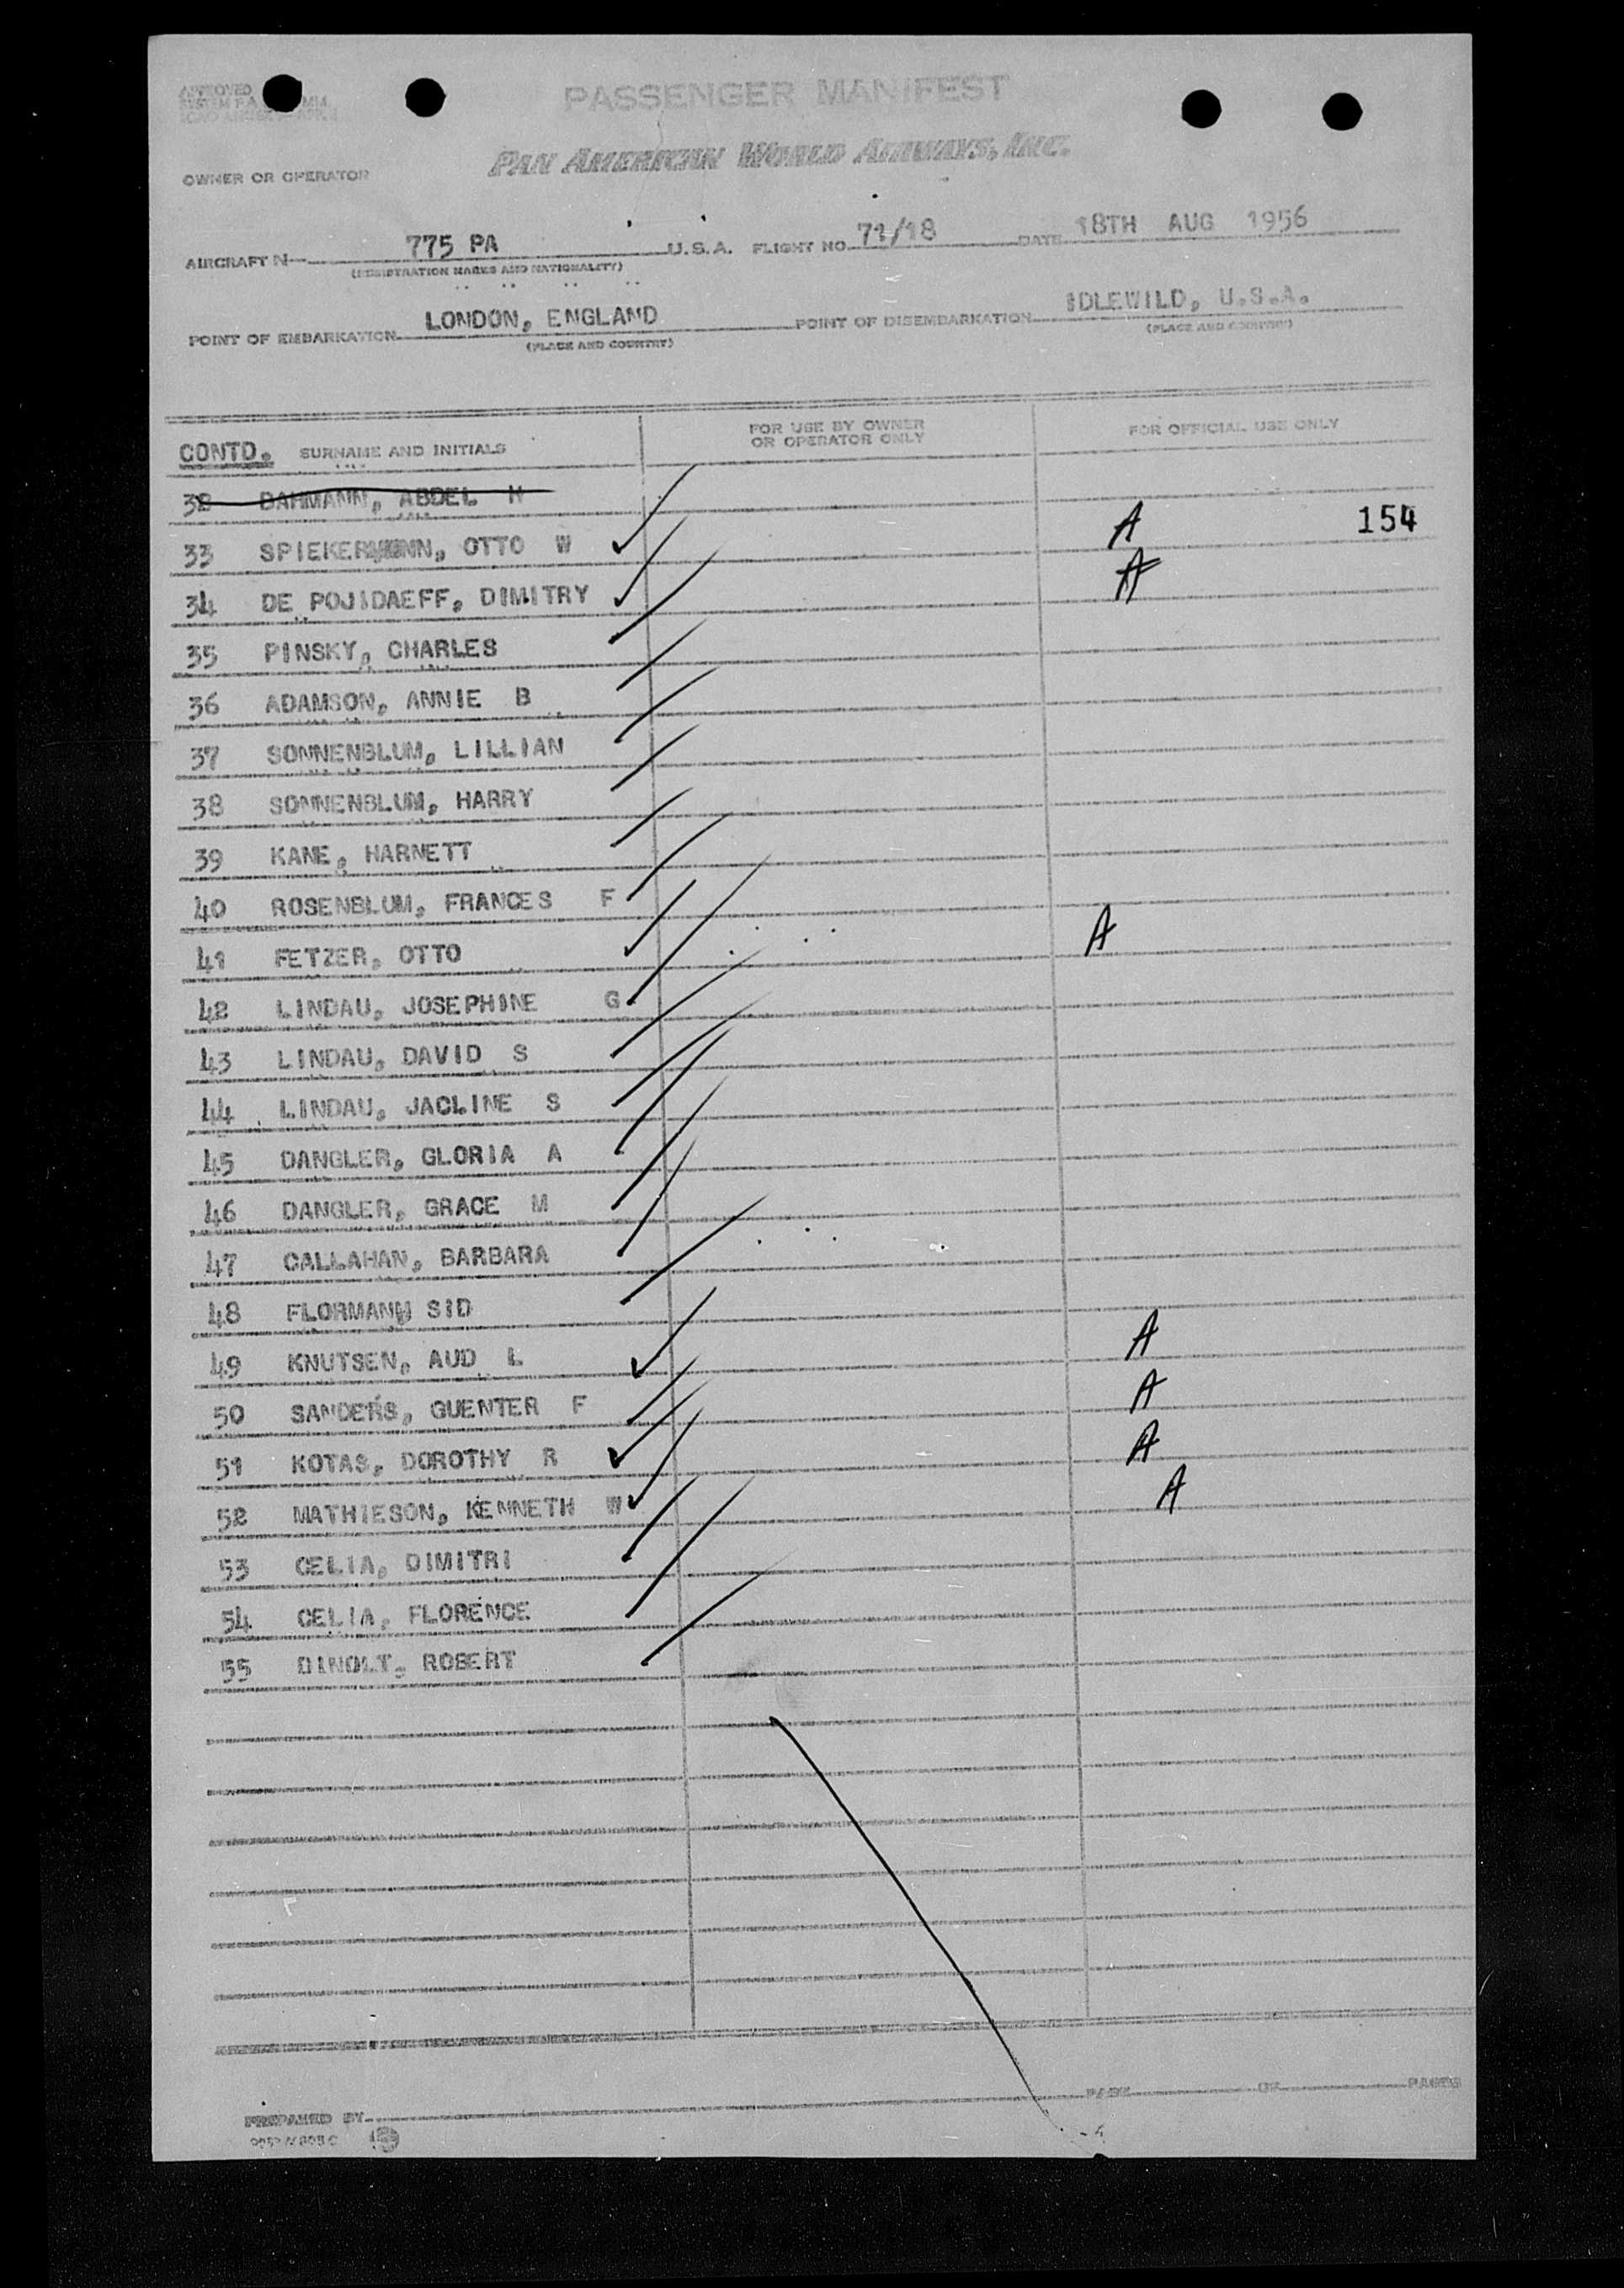 APPROVED
PASSENGER MANIFEST
PAN AMERICAN WORLD AIRWAYS, INC.
OWNER OR OPERATOR
AIRCRAFT N 775 PA U.S.A. FLIGHT NO. 71/18 DATE 18TH AUG 1956
(REGISTRATION MARKS AND NATIONALITY)
POINT OF EMBARKATION LONDON, ENGLAND POINT OF DISEMBARKATION IDLEWILD, U.S.A.
(PLACE AND COUNTRY) (PLACE AND COUNTRY)
CONTD. SURNAME AND INITIALS FOR USE BY OWNER OR OPERATOR ONLY FOR OFFICIAL USE ONLY
32 DAHMANN, ABDEL H
33 SPIEKERMANN, OTTO W A 154
34 DE POJIDAEFF, DIMITRY A
35 PINSKY, CHARLES
36 ADAMSON, ANNIE B
37 SONNENBLUM, LILLIAN
38 SONNENBLUM, HARRY
39 KANE, HARNETT
40 ROSENBLUM, FRANCES F
41 FETZER, OTTO A
42 LINDAU, JOSEPHINE G
43 LINDAU, DAVID S
44 LINDAU, JACLINE S
45 DANGLER, GLORIA A
46 DANGLER, GRACE M
47 CALLAHAN, BARBARA
48 FLORMAN, SID
49 KNUTSEN, AUD L A
50 SANDERS, GUENTER F A
51 KOTAS, DOROTHY R A
52 MATHIESON, KENNETH W A
53 CELIA, DIMITRI
54 CELIA, FLORENCE
55 DINOLT, ROBERT
PAGE OF PAGES
PREPARED BY